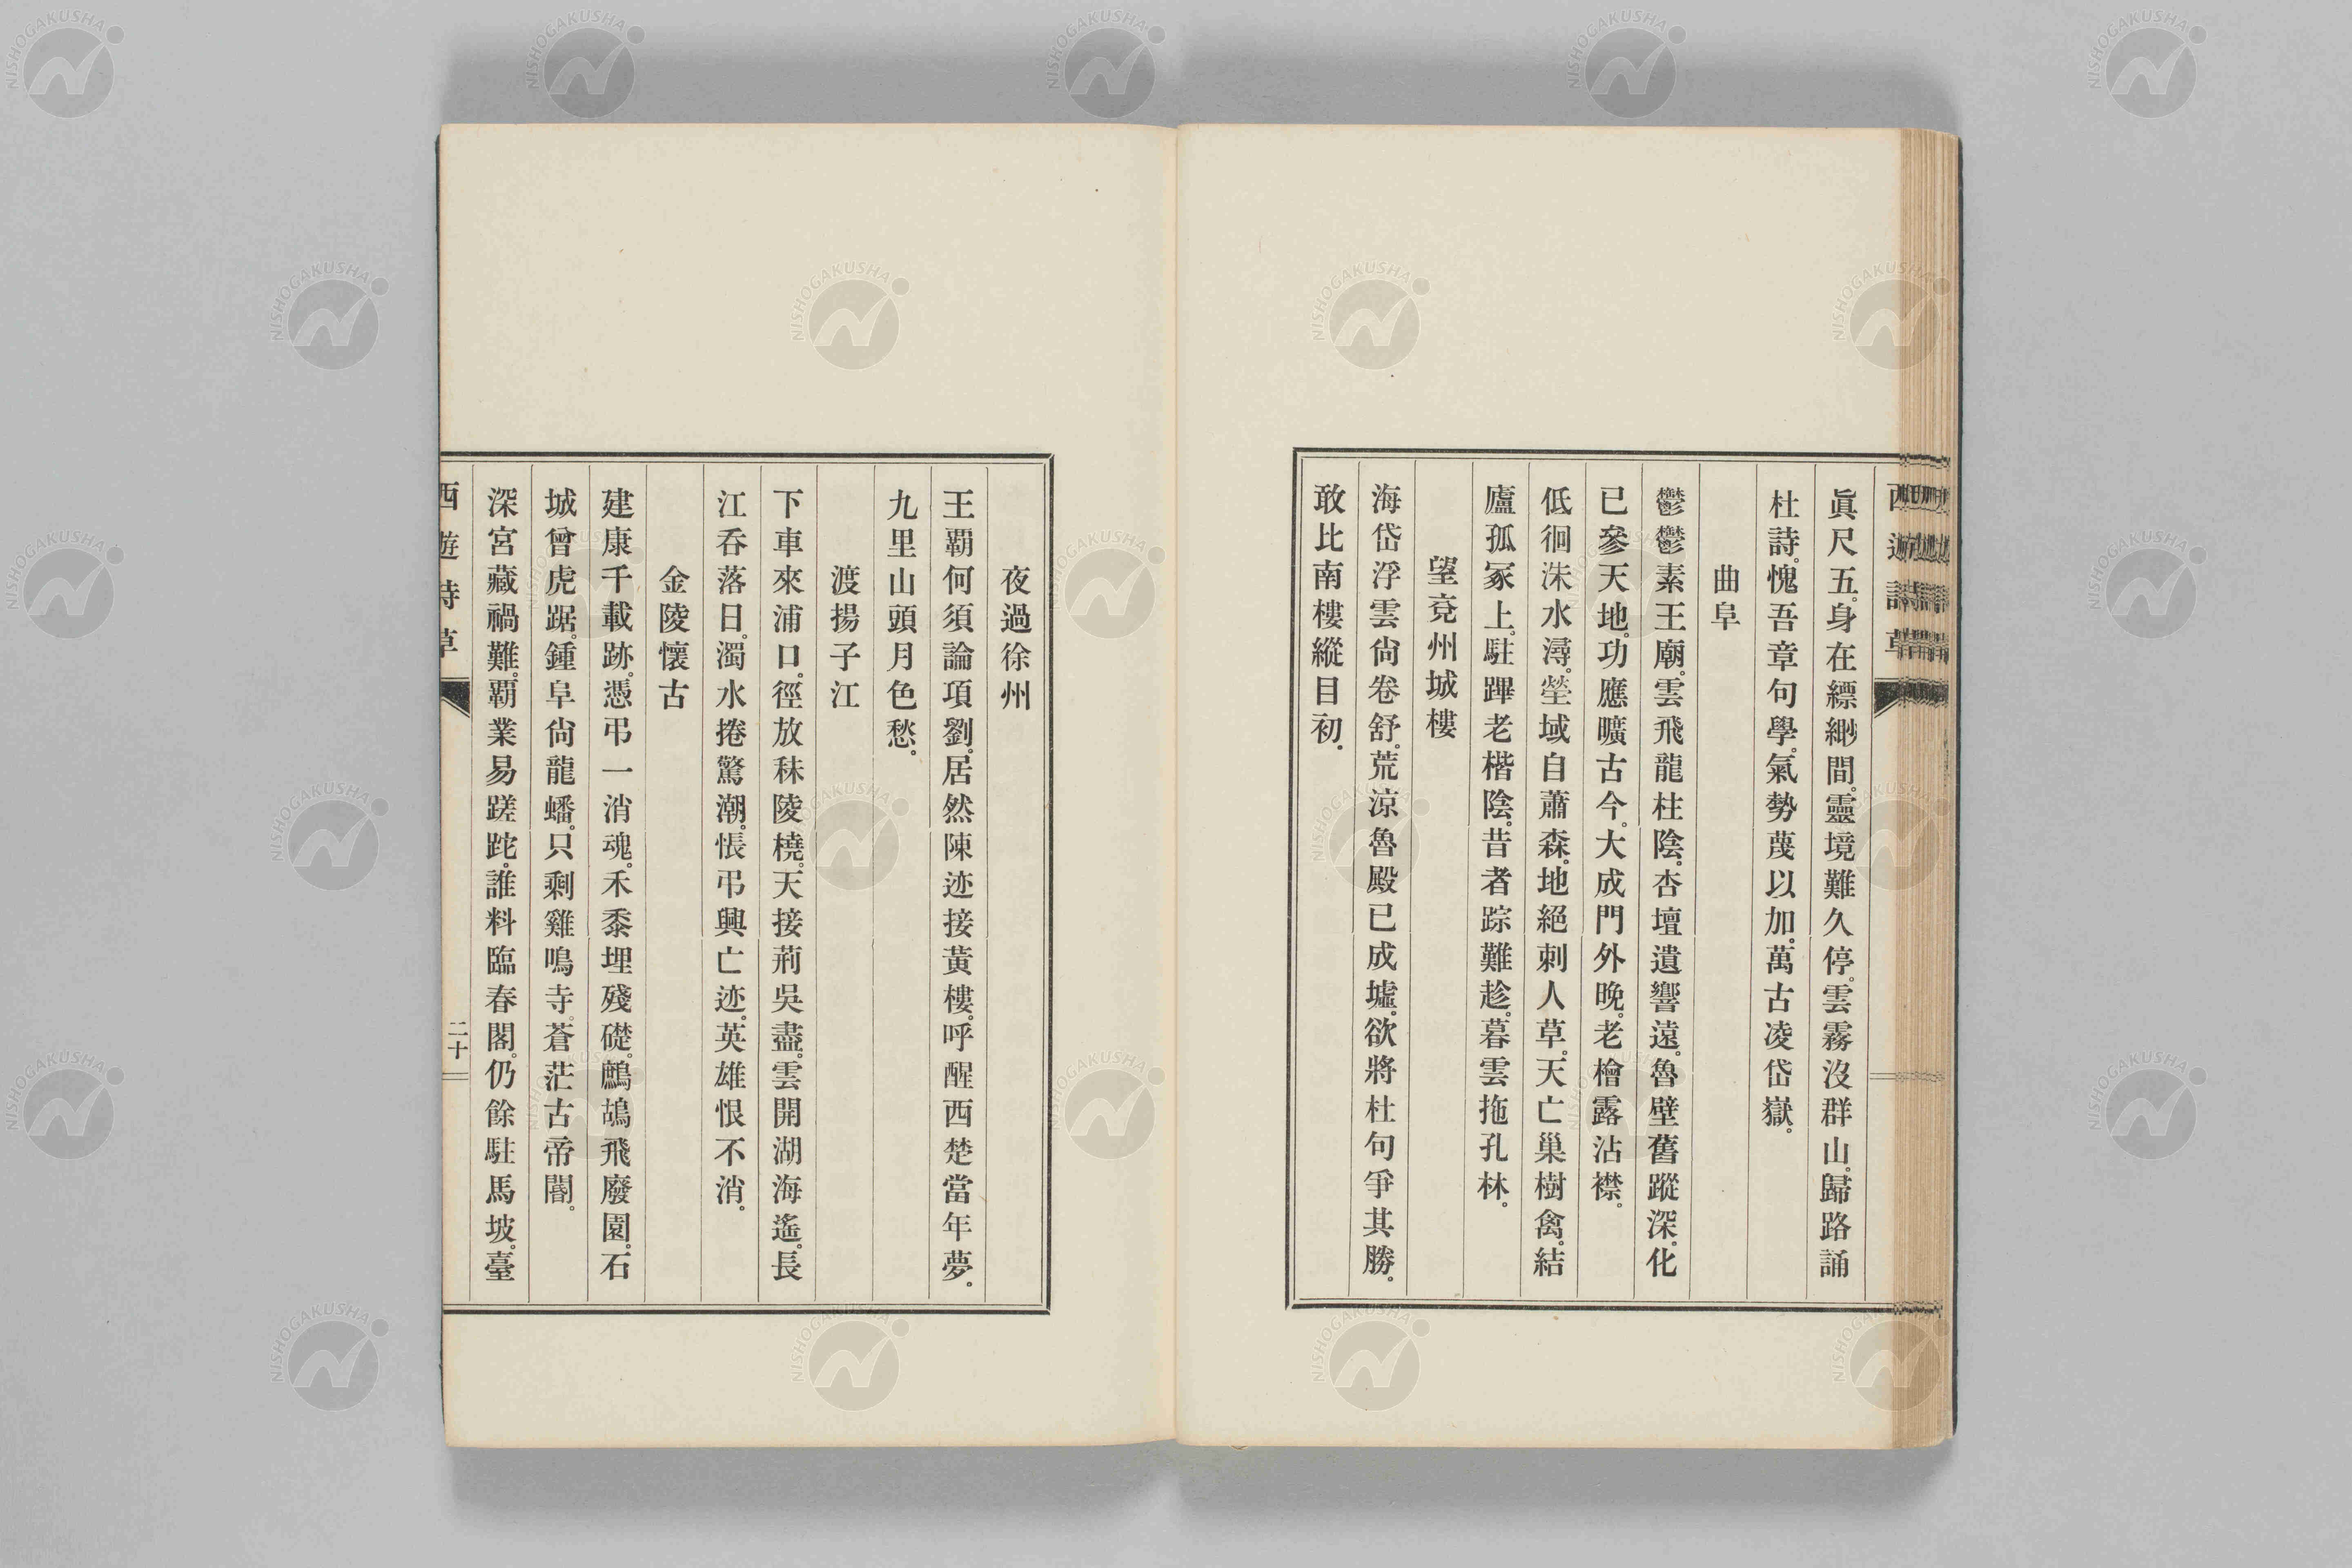 眞尺五。身在縹緲間。靈境難久停。雲霧沒群山。歸路誦
杜詩。愧吾章句學。氣勢蔑以加。萬古凌岱嶽。
曲阜
鬱鬱素王廟。雲飛龍柱陰。杏壇遺響遠。魯壁舊蹤深。化
已參天地。功應曠古今。大成門外晚。老檜露沾襟。
低徊洙水潯。塋域自蕭森。地絕刺人草。天亡巢樹禽。結
廬孤冢上。駐蹕老楷陰。昔者踪難趁。暮雲拖孔林。
望兗州城樓
海岱浮雲尙卷舒。荒涼魯殿已成墟。欲將杜句爭其勝。
敢比南樓縱目初。
夜過徐州
王覇何須論項劉。居然陳迹接黃樓。呼醒西楚當年夢。
九里山頭月色愁。
渡揚子江
下車來浦口。徑放秣陵橈。天接荊吳盡。雲開湖海遙。長
江呑落日。濁水捲驚潮。悵弔興亡迹。英雄恨不消。
金陵懷古
建康千載跡。憑弔一消魂。禾黍埋殘礎。鷓鴣飛廢園。石
城曾虎踞。鍾阜尙龍蟠。只剩雞鳴寺。蒼茫古帝閽。
深宮藏禍難。覇業易蹉跎。誰料臨春閣。仍餘駐馬坡。臺
西遊詩草
二十
NISHOGAKUSHA